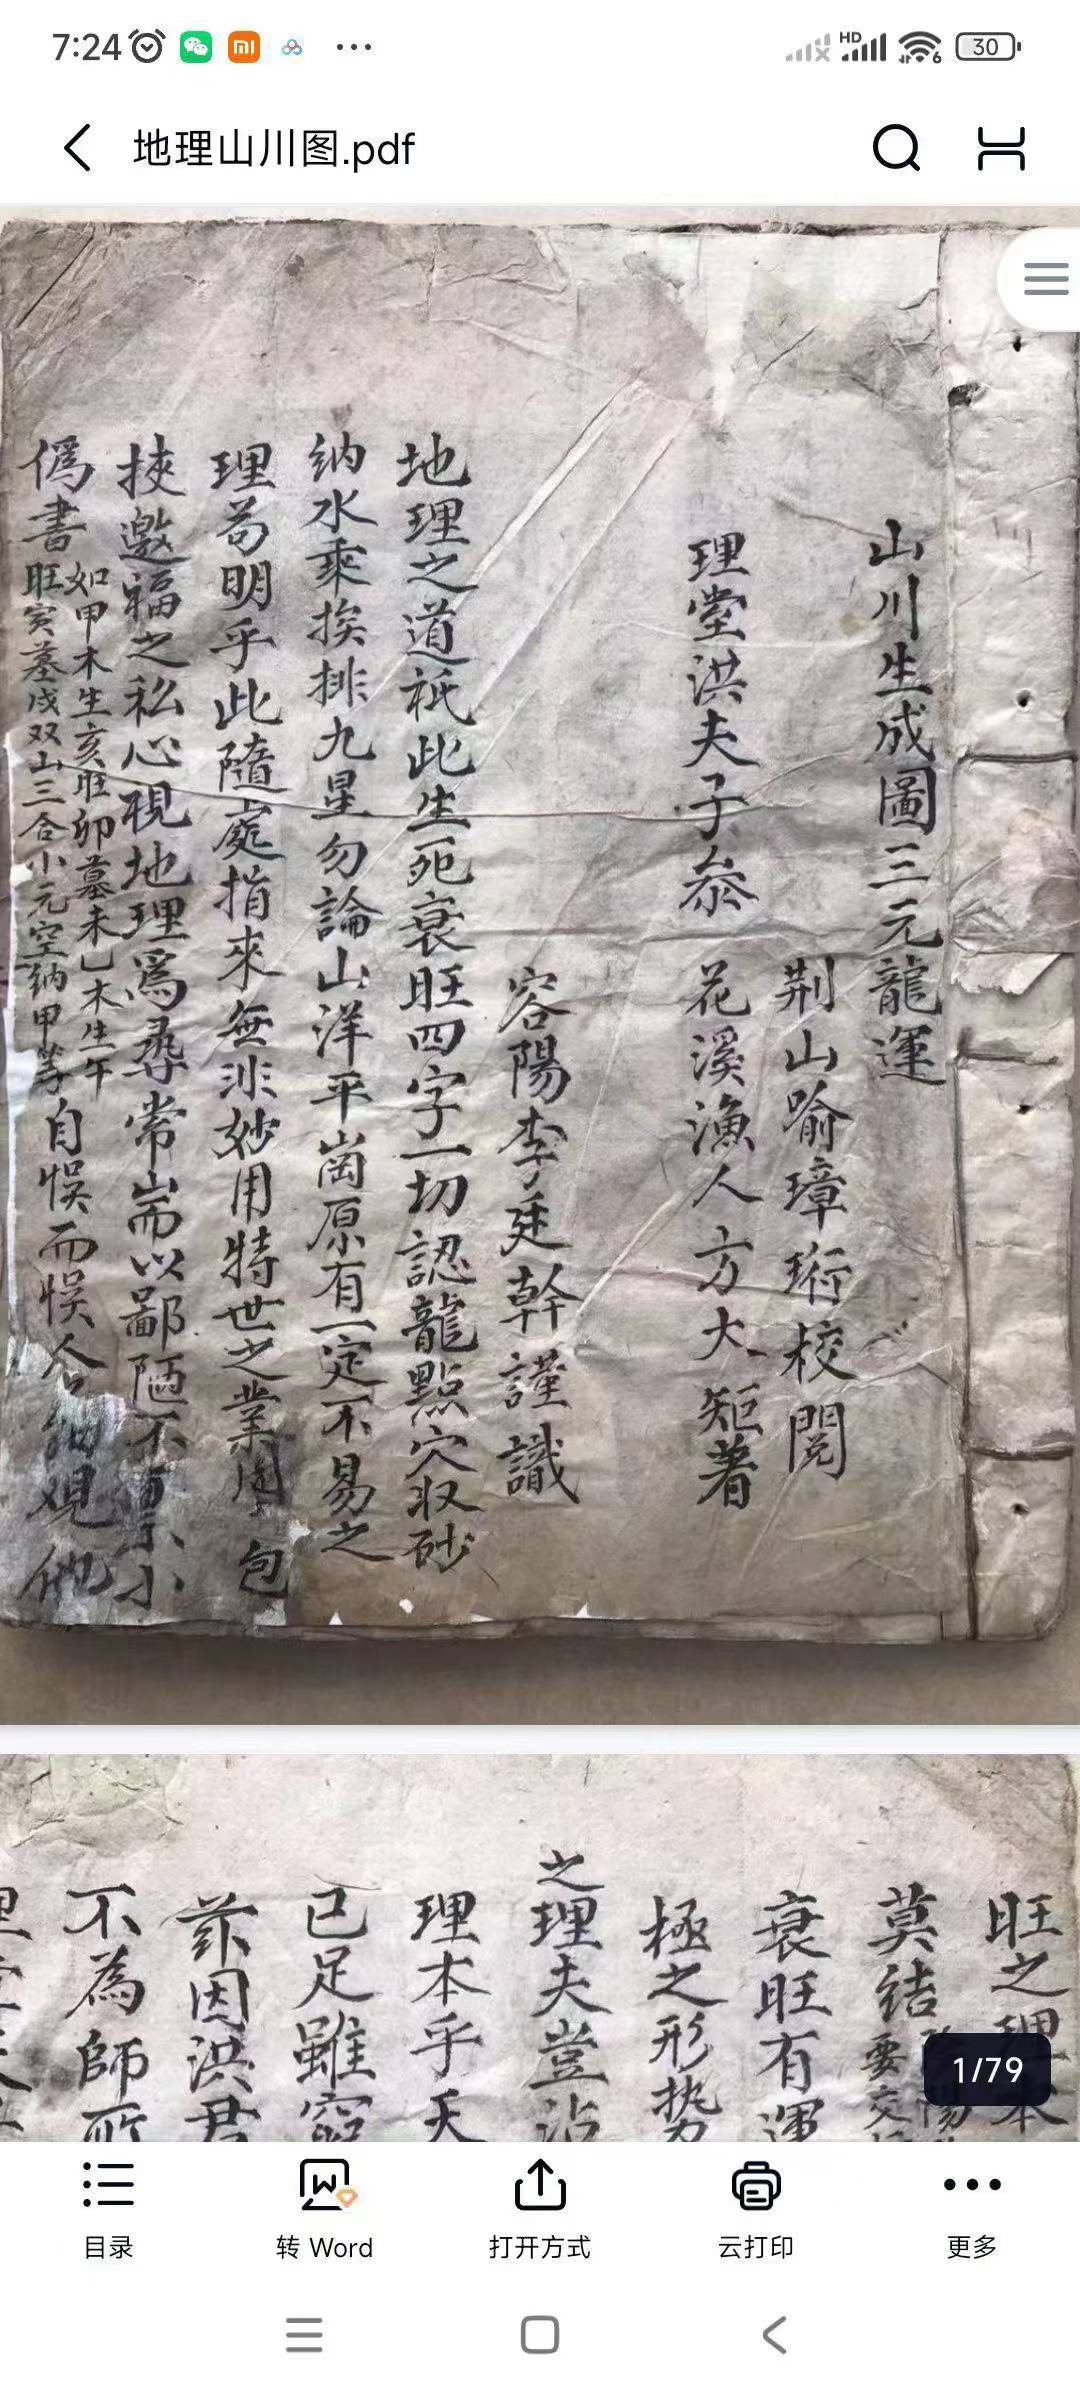 7:24
HD
6
30
地理山川图.pdf
山川生成圖三元龍運
荆山喻璋珩校閲
理堂洪夫子叅 花溪漁人方大矩著
容陽李廷幹謹識
地理之道祇此生死衰旺四字一切認龍點穴収砂
纳水乘挨排九星勿論山洋平崗原有一定不易之
理苟明乎此隨處指來無非妙用特世之業 包
挾邀福之私心視地理爲尋常耑以鄙陋不 小
僞書 如甲木生亥旺卯墓未乙木生午
旺寅墓戌双山三合小元空纳甲等 自悮而悮人 細观他
旺之理本
莫结 要交 陽
衰旺有運
極之形势
之理夫豈沾
理本乎天
已足雖窮
茲因洪君
不為師所
理
1/79
目录
转 Word
打开方式
云打印
更多